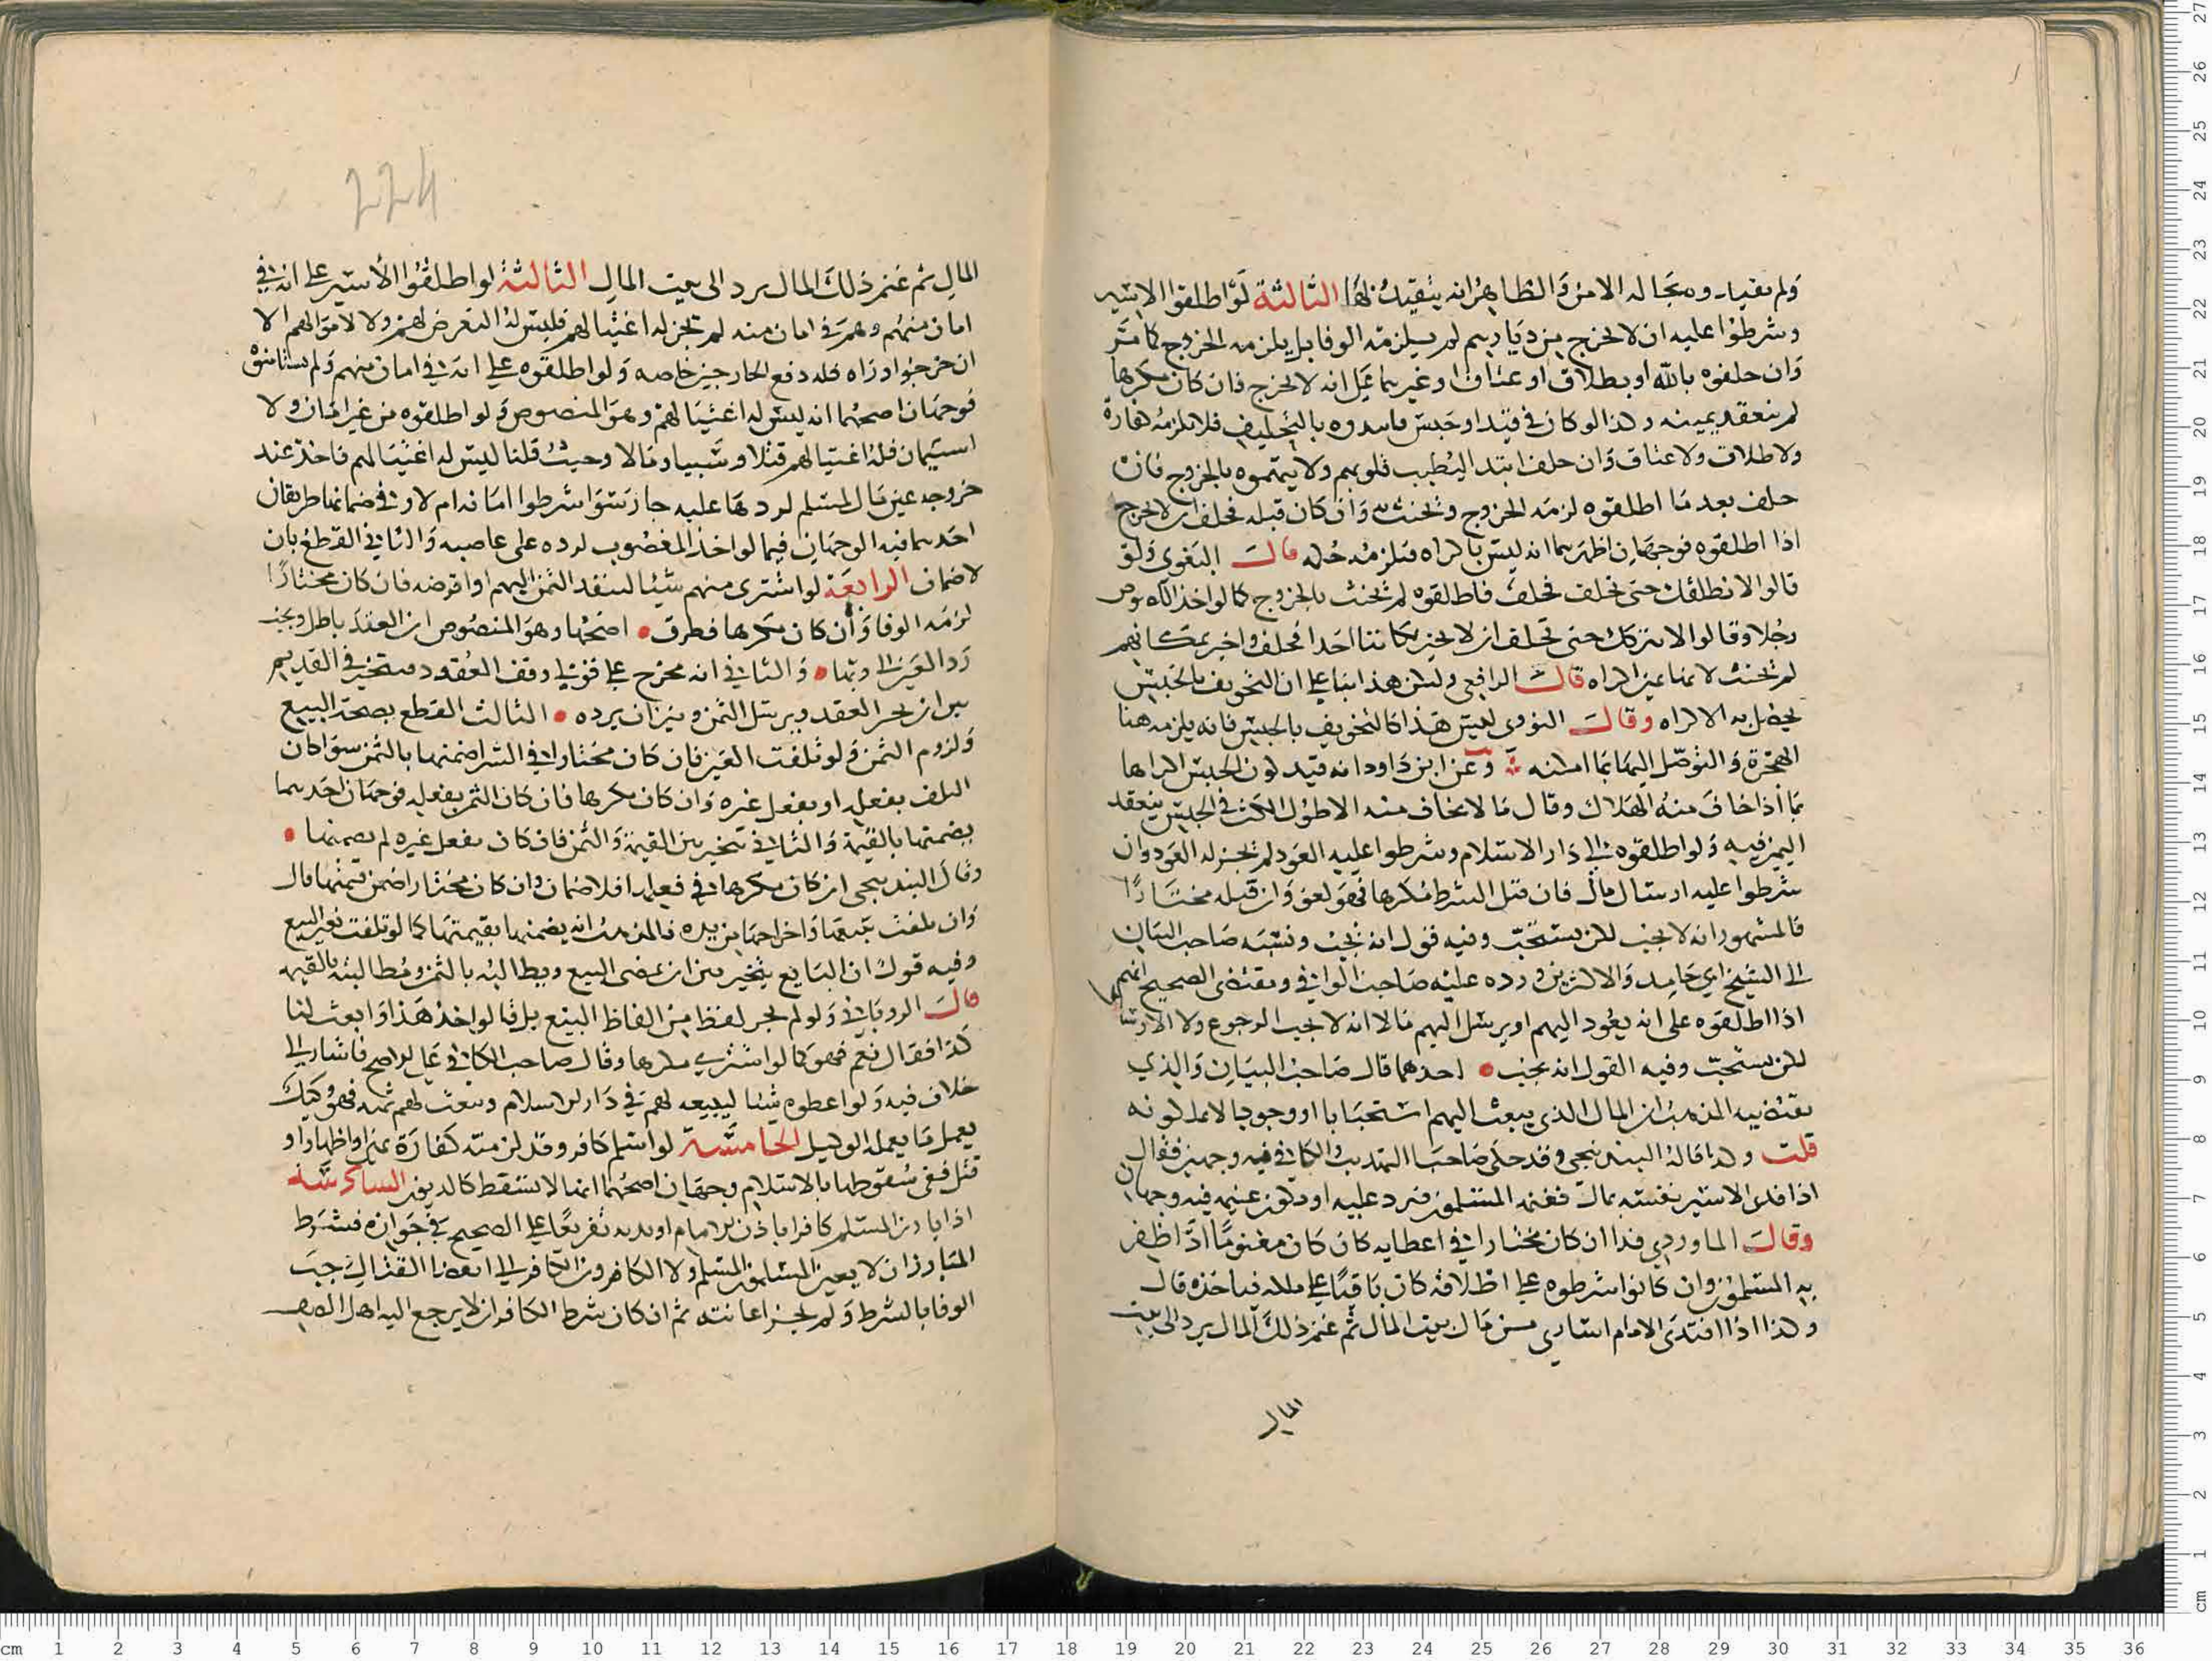 ولم يقيد وحجا له الامن والظاهر انه يتقيد بها الثالثة لو اطلقوا الاسير
وشرطوا عليه ان لا يخرج من ديارهم لم يلزمه الوفا بل يلزمه الخروج كما مر
وان حلفوه بالله او بطلاق او عتاق او غيرهما على انه لا يخرج فان كان مكرها
لم ينعقد يمينه وكذا لو كان في قيد او حبس بالتحليف فلا تلزمه كفارة
ولا طلاق ولا عتاق وان حلف ابتدا ليطيب قلوبهم ولا يتهموه بالخروج فان
حلف بعد ما اطلقوه لزمه الخروج ويحنث وان كان قبله فحلف ان لا يخرج
اذا اطلقوه فوجهان اظهرهما انه ليس باكراه فيلزمه حكمه قال البغوي ولو
قالوا لا نطلقك حتى تحلف فحلف فاطلقوه لم يحنث بالخروج كما لو اخذ اللصوص
رجلا وقالوا لا نتركك حتى تحلف ان لا تخبر بمكاننا احدا فحلف واخبر بمكانهم
لم يحنث لانها يمين اكراه قال الرافعي وليكن هذا بناء على ان التخويف بالحبس
يحصل به الاكراه وقال النووي ليس هذا كالتخويف بالحبس فانه يلزمه هنا
الهجرة والتوصل اليها بما امكنه وعن ابن داود انه قيد كون الحبس اكراها
بما اذا خاف منه الهلاك وقال ما لا يخاف منه الا طول المكث في الحبس ينعقد
اليمين فيه ولو اطلقوه الى دار الاسلام وشرطوا عليه العود لم يجز له العود وان
شرطوا عليه ارسال مال فان قبل الشرط مكرها فهو لغو وان قبله مختارا
فالمشهور انه لا يجب لكن يستحب وفيه قول انه يجب ونسبه صاحب البيان
الى الشيخ ابي حامد والاكثرين ورده عليه صاحب الوافي ومقتضى الصحيح انهم
اذا اطلقوه على انه يعود اليهم او يرسل اليهم مالا انه لا يجب الرجوع ولا الارسال
لكن يستحب وفيه القول انه يجب احدهما قال صاحب البيان والذي
يقتضيه المذهب ان المال الذي يبعث اليهم استحبابا او وجوبا لا يملكونه
قلت وكذا قاله البندنيجي وقد حكى صاحب التهذيب والكافي فيه وجهين فقال
اذا فدى الاسير نفسه بمال فغنمه المسلمون فيرد عليه او يكون غنيمة فيه وجهان
وقال الماوردي فدا ان كان مختارا في اعطايه كان مغنوما اذا ظفر
به المسلمون وان كانوا شرطوه على اطلاقه كان باقيا على ملكه فياخذه قال
وكذا اذا افتدى الامام اسارى من مال بيت المال ثم غنم ذلك المال يرد الى بيت
المال
224
المال ثم غنم ذلك المال يرد الى بيت المال الثالثة لو اطلقوا الاسير على انه في
امان منهم وهم في امان منه لم يجز له اغتيالهم فليس له التعرض لهم ولا لاموالهم الا
ان خرجوا وراه فله دفع الخارجين خاصه ولو اطلقوه على انه في امان منهم ولم يستامنوه
فوجهان اصحهما انه ليس له اغتيالهم وهو المنصوص ولو اطلقوه من غير امان ولا
استيمان فله اغتيالهم قتلا وسبيا ومالا وحيث قلنا ليس له اغتيالهم فاخذ عند
خروجه عين مال المسلم ليردها عليه جاز سوا شرطوا امانه ام لا وفي ضمانها طريقان
احدهما فيه الوجهان فيما لو اخذ المغصوب ليرده على غاصبه والثاني القطع بان
لا ضمان الرابعة لو اشترى منهم شيئا لينفذ الثمن اليهم او اقرضه فان كان مختارا
لزمه الوفا وان كان مكرها فطرق اصحها وهو المنصوص ان العقد باطل ويجب
رد العين والثاني انه مخرج على قولي وقف العقود فيتخير في القديم
بين ان يجيز العقد ويرسل الثمن وبين ان يرده الثالث القطع بصحة البيع
ولزوم الثمن ولو تلفت العين فان كان مختارا في الشرا ضمنها بالثمن سوا كان
التلف بفعله او بفعل غيره وان كان مكرها فان كان التلف بفعله فوجهان احدهما
يضمنها بالقيمة والثاني يتخير بين القيمة والثمن فان كان بفعل غيره لم يضمنها
وقال البندنيجي ان كان مكرها في فعله فلا ضمان وان كان مختارا ضمن قيمتها قال
وان تلفت بيعها واخراجها من يده فالمذهب انه يضمنها بقيمتها كما لو تلفت بغير البيع
وفيه قول ان البايع يتخير بين ان يمضي البيع ويطالبه بالثمن ومطالبته بالقيمة
قال الروياني ولو لم يجر لفظ من الفاظ البيع بل قالوا خذ هذا وابعث لنا
كذا فقال نعم فهو كما لو اشترى مكرها وقال صاحب الكافي على الاصح فاشار الى
خلاف فيه ولو اعطوه شيئا ليبيعه لهم في دار الاسلام ويبعث لهم ثمنه فهو كيل
يعمل ما يعمله الوكيل الخامسة لو اسلم كافر وقد لزمته كفارة يمين او ظهار او
قتل ففي سقوطها بالاسلام وجهان اصحهما انها لا تسقط كالديون السادسة
اذا بارز المسلم كافرا باذن الامام او بدونه تفريعا على الصحيح في جوازه فشرط
المبارز ان لا يعين المسلمون المسلم ولا الكافرون الكافر الى انقضا القتال وجب
الوفا بالشرط ولم يجز اعانته ثم ان كان شرط الكافر ان لا يرجع اليه اهل الصف